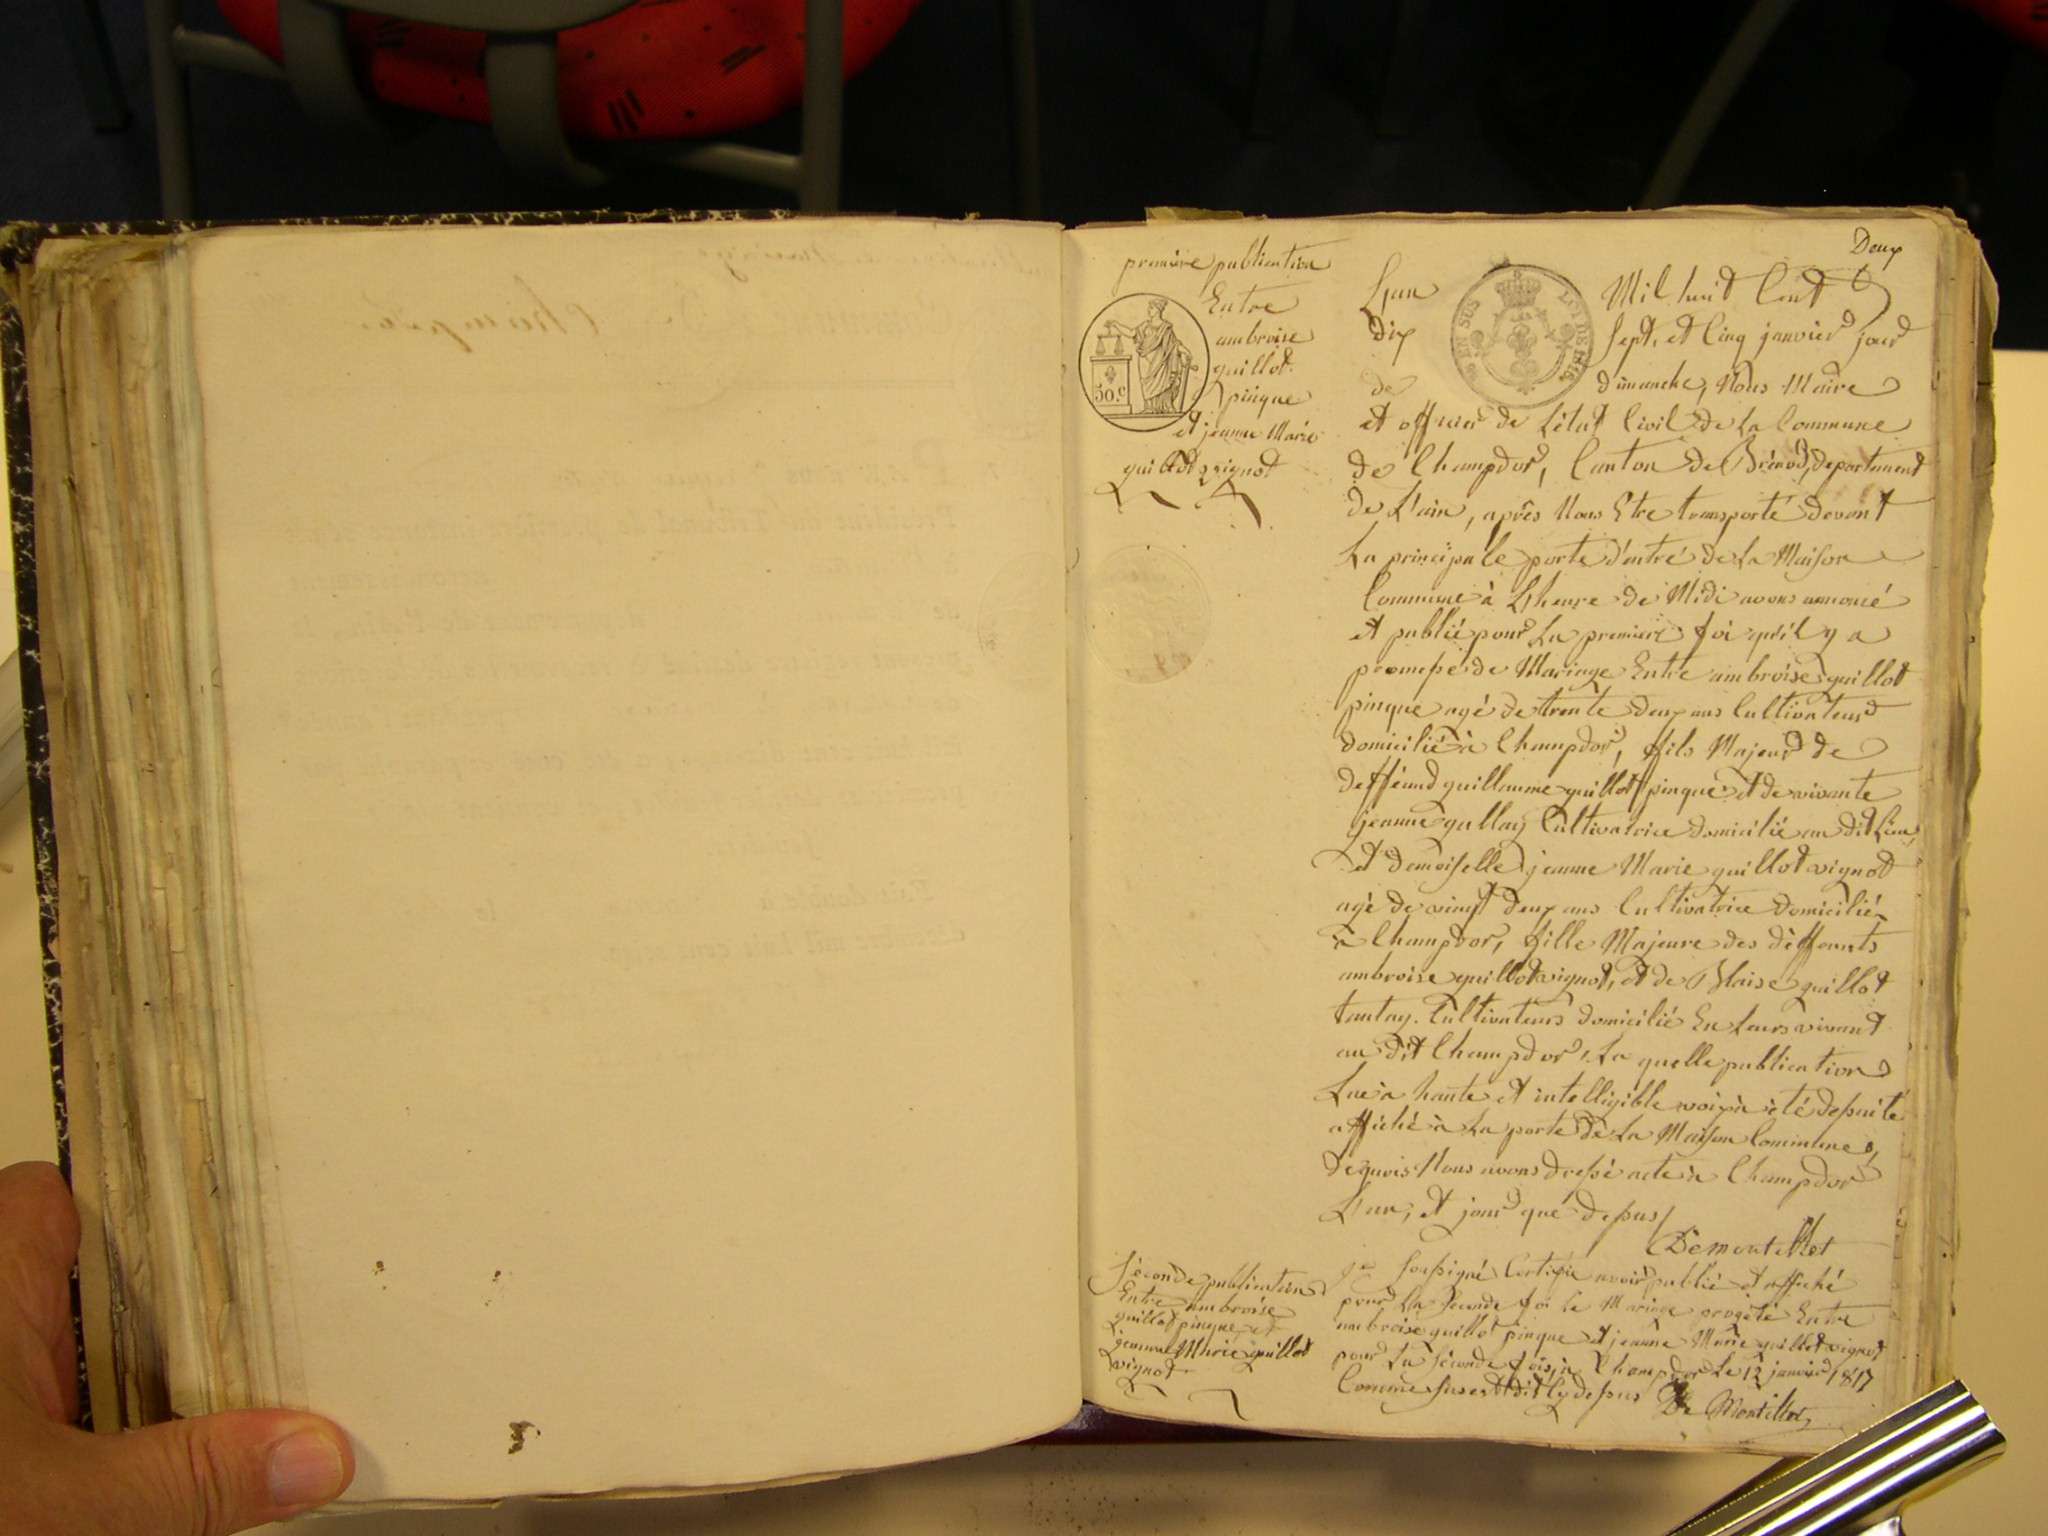 Deux
première publication
Entre
ambroise
guillot
pinque
et jeanne Marie
guillot vignot
50.c
EN SUS
L'an Mil huit Cent
dix Sept, et Cinq janvier jour
de dimanche, Nous Maire
et officier de L'état Civil de La Commune
de Champdor, Canton de Brénod, departement
de L'ain, après Nous Etre transporté devant
La principale porte d'entré de La Maison
Commune à L'heure de Midi avons annoncé
et publié pour La premiere foi qu'il y a
promesse de Mariage Entre ambroise guillot
pinque agé de trente deux ans Cultivateur
domicilié à Champdor, fils Majeur de
deffeund guillaume guillot pinque et de vivante
jeanne gullay Cultivatrice domicilié au dit Lieu,
et demoiselle jeanne Marie guillot vignot
agé de vingt deux ans Cultivatrice domicilié
à Champdor, fille Majeure des déffeunts
ambroise guillot vignot, et de Blaise guillot
tantay. Cultivateurs domicilié En Leurs vivant
au dit Champdor, La quelle publication
Lue à haute et intelligible voix à été de suite
affiché à La porte de La Maison Commune,
de quois Nous avons dressé acte à Champdor
L'an, et jour que dessus/
Demontillet
Séconde publication
Entre ambroise
guillot pinque et
jeanne Marie guillot
vignot
je soussigné Certifie avoir publié et affiché
pour La seconde foi le Mariage progété Entre
ambroise guillot pinque et jeanne Marie guillot vignot
pour La séconde fois, à Champdor Le 12 janvier 1817
Comme sus est dit Cy dessus De Montillet